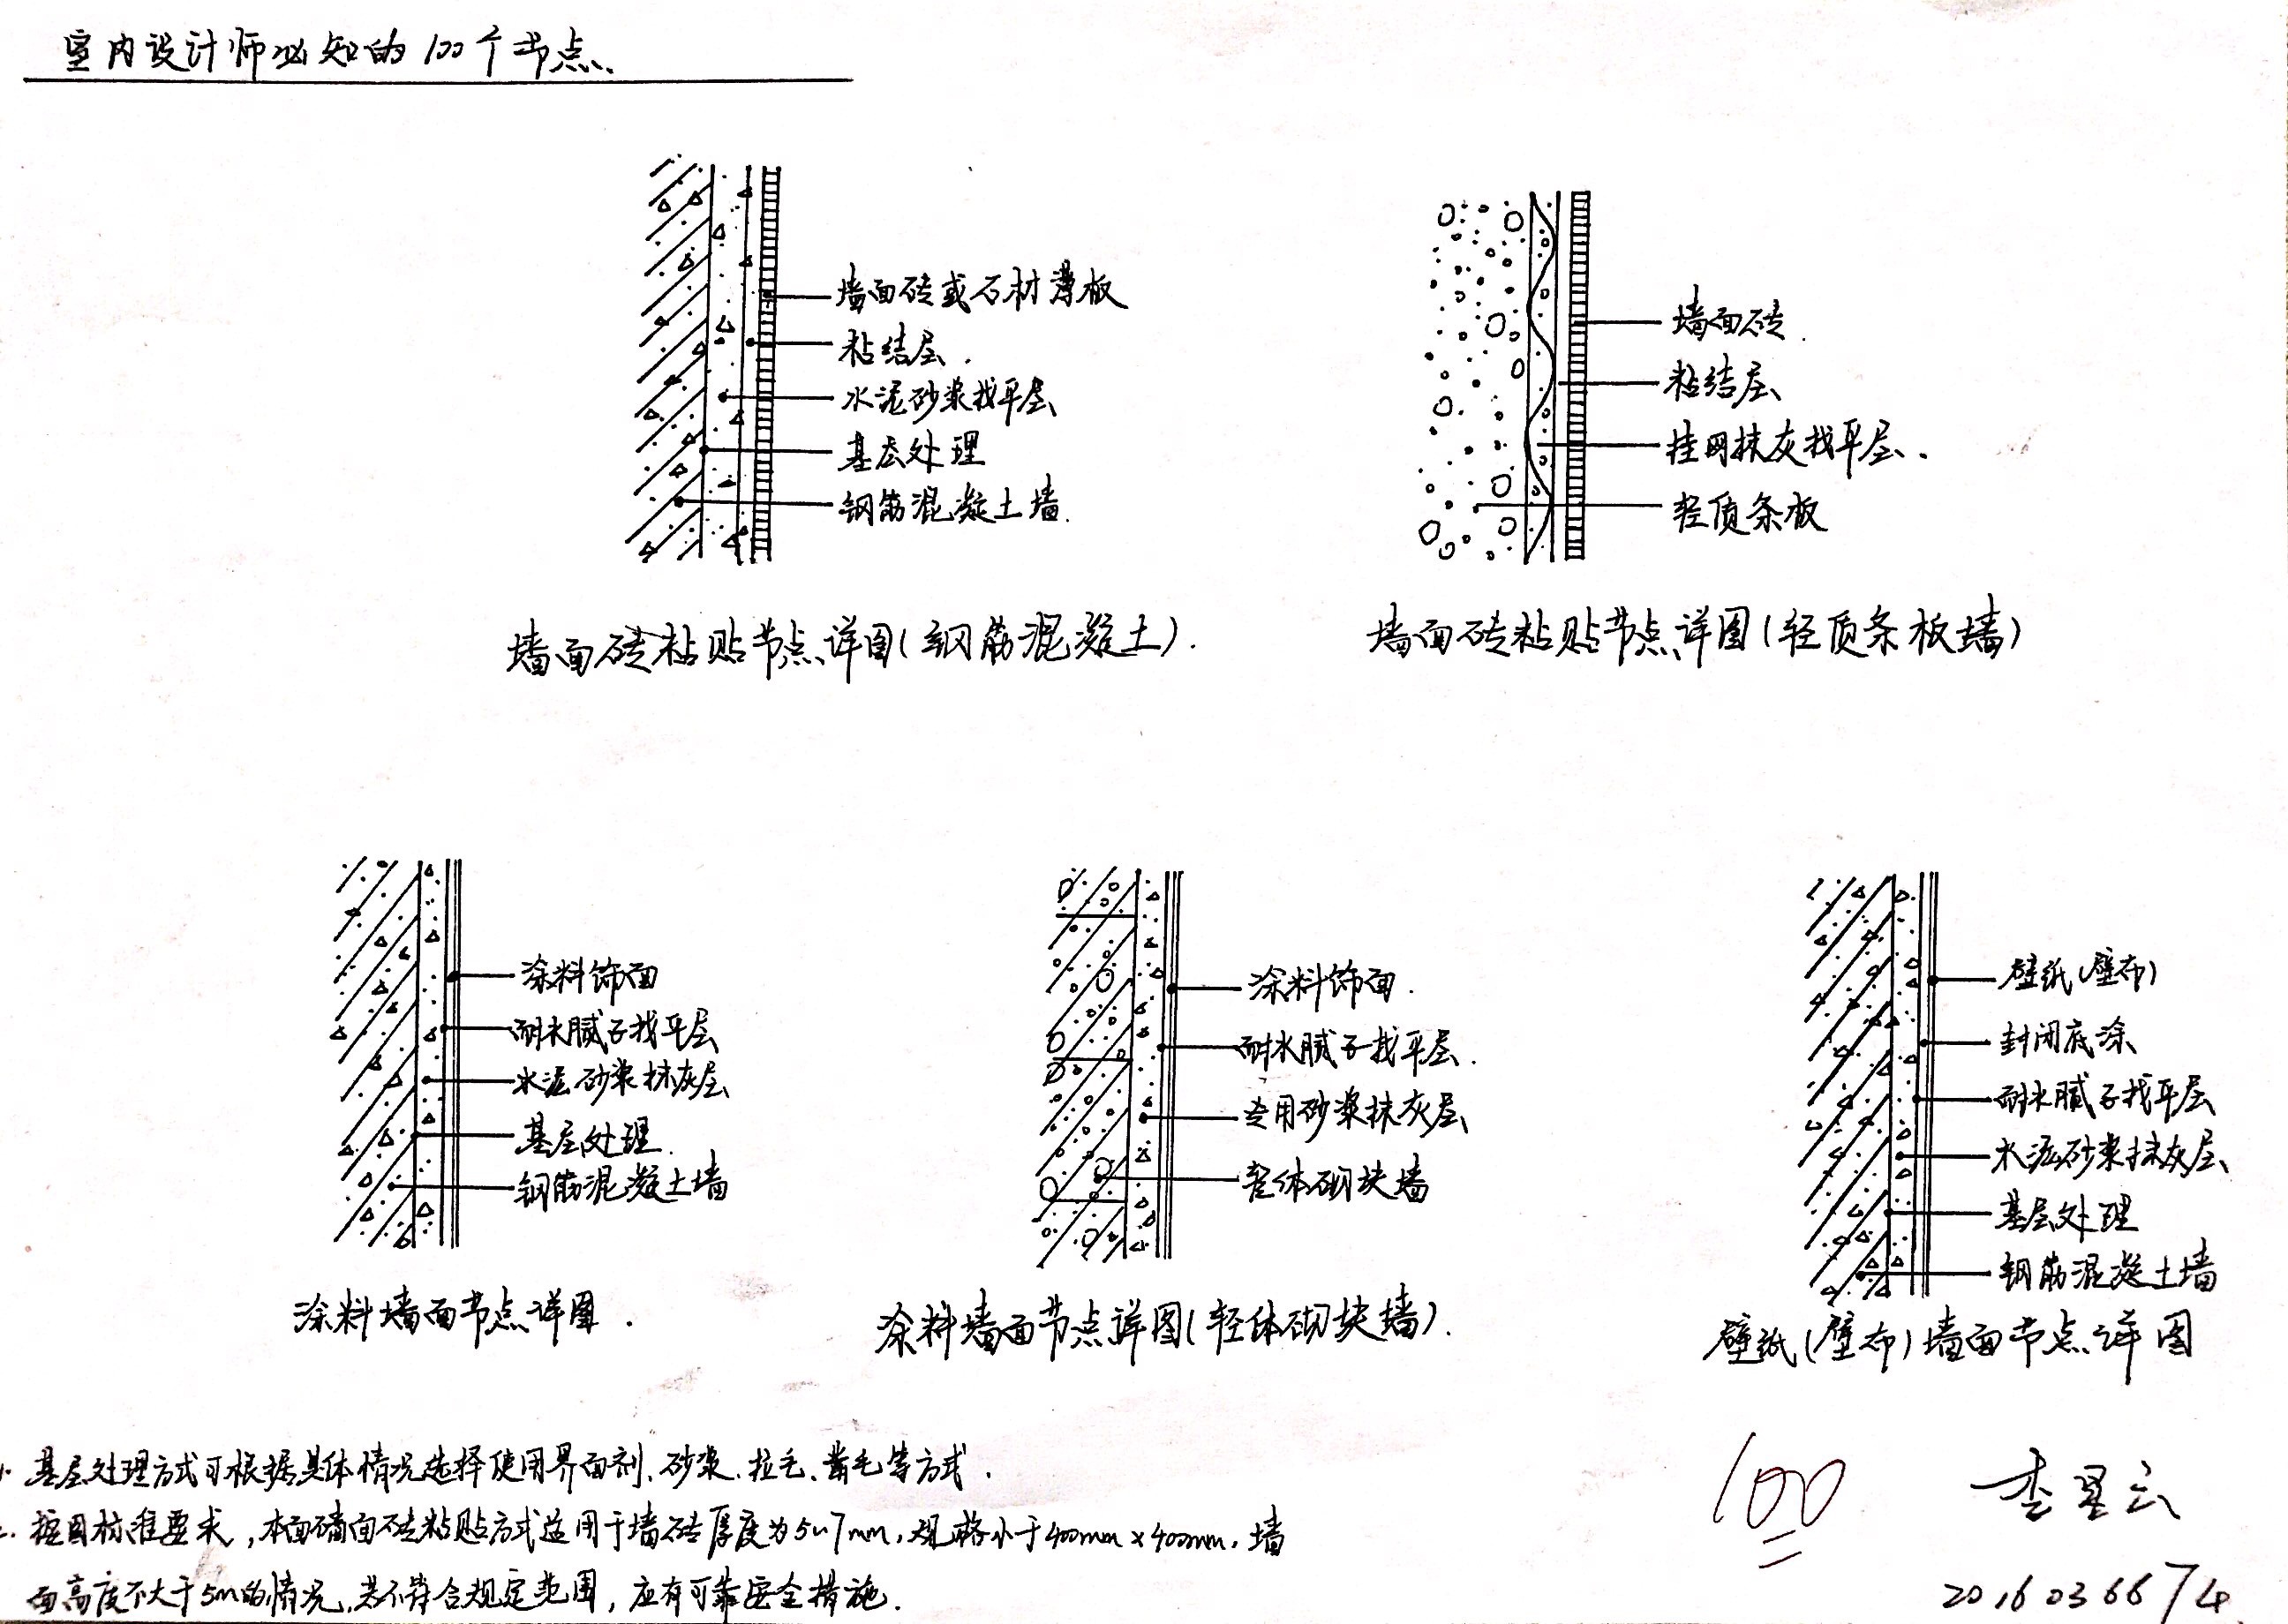 室内设计师必知的100个节点
墙面砖或石材薄板
粘结层.
水泥砂浆找平层
基层处理
钢筋混凝土墙.
墙面砖粘贴节点详图(钢筋混凝土).
墙面砖.
粘结层
挂网抹灰找平层.
轻质条板
墙面砖粘贴节点详图(轻质条板墙)
涂料饰面
耐水腻子找平层
水泥砂浆抹灰层
基层处理.
钢筋混凝土墙
涂料墙面节点详图.
涂料饰面.
耐水腻子找平层.
专用砂浆抹灰层
轻体砌块墙
涂料墙面节点详图(轻体砌块墙).
壁纸(壁布)
封闭底涂
耐水腻子找平层
水泥砂浆抹灰层
基层处理
钢筋混凝土墙
壁纸(壁布)墙面节点详图
1. 基层处理方式可根据具体情况选择使用界面剂、砂浆、拉毛、凿毛等方式.
2. 按国标准要求,本面墙面砖粘贴方式适用于墙砖厚度为5~7mm,规格小于400mm×400mm,墙
面高度不大于5m的情况,若不符合规定范围,应有可靠安全措施.
100
李星云
2016036674